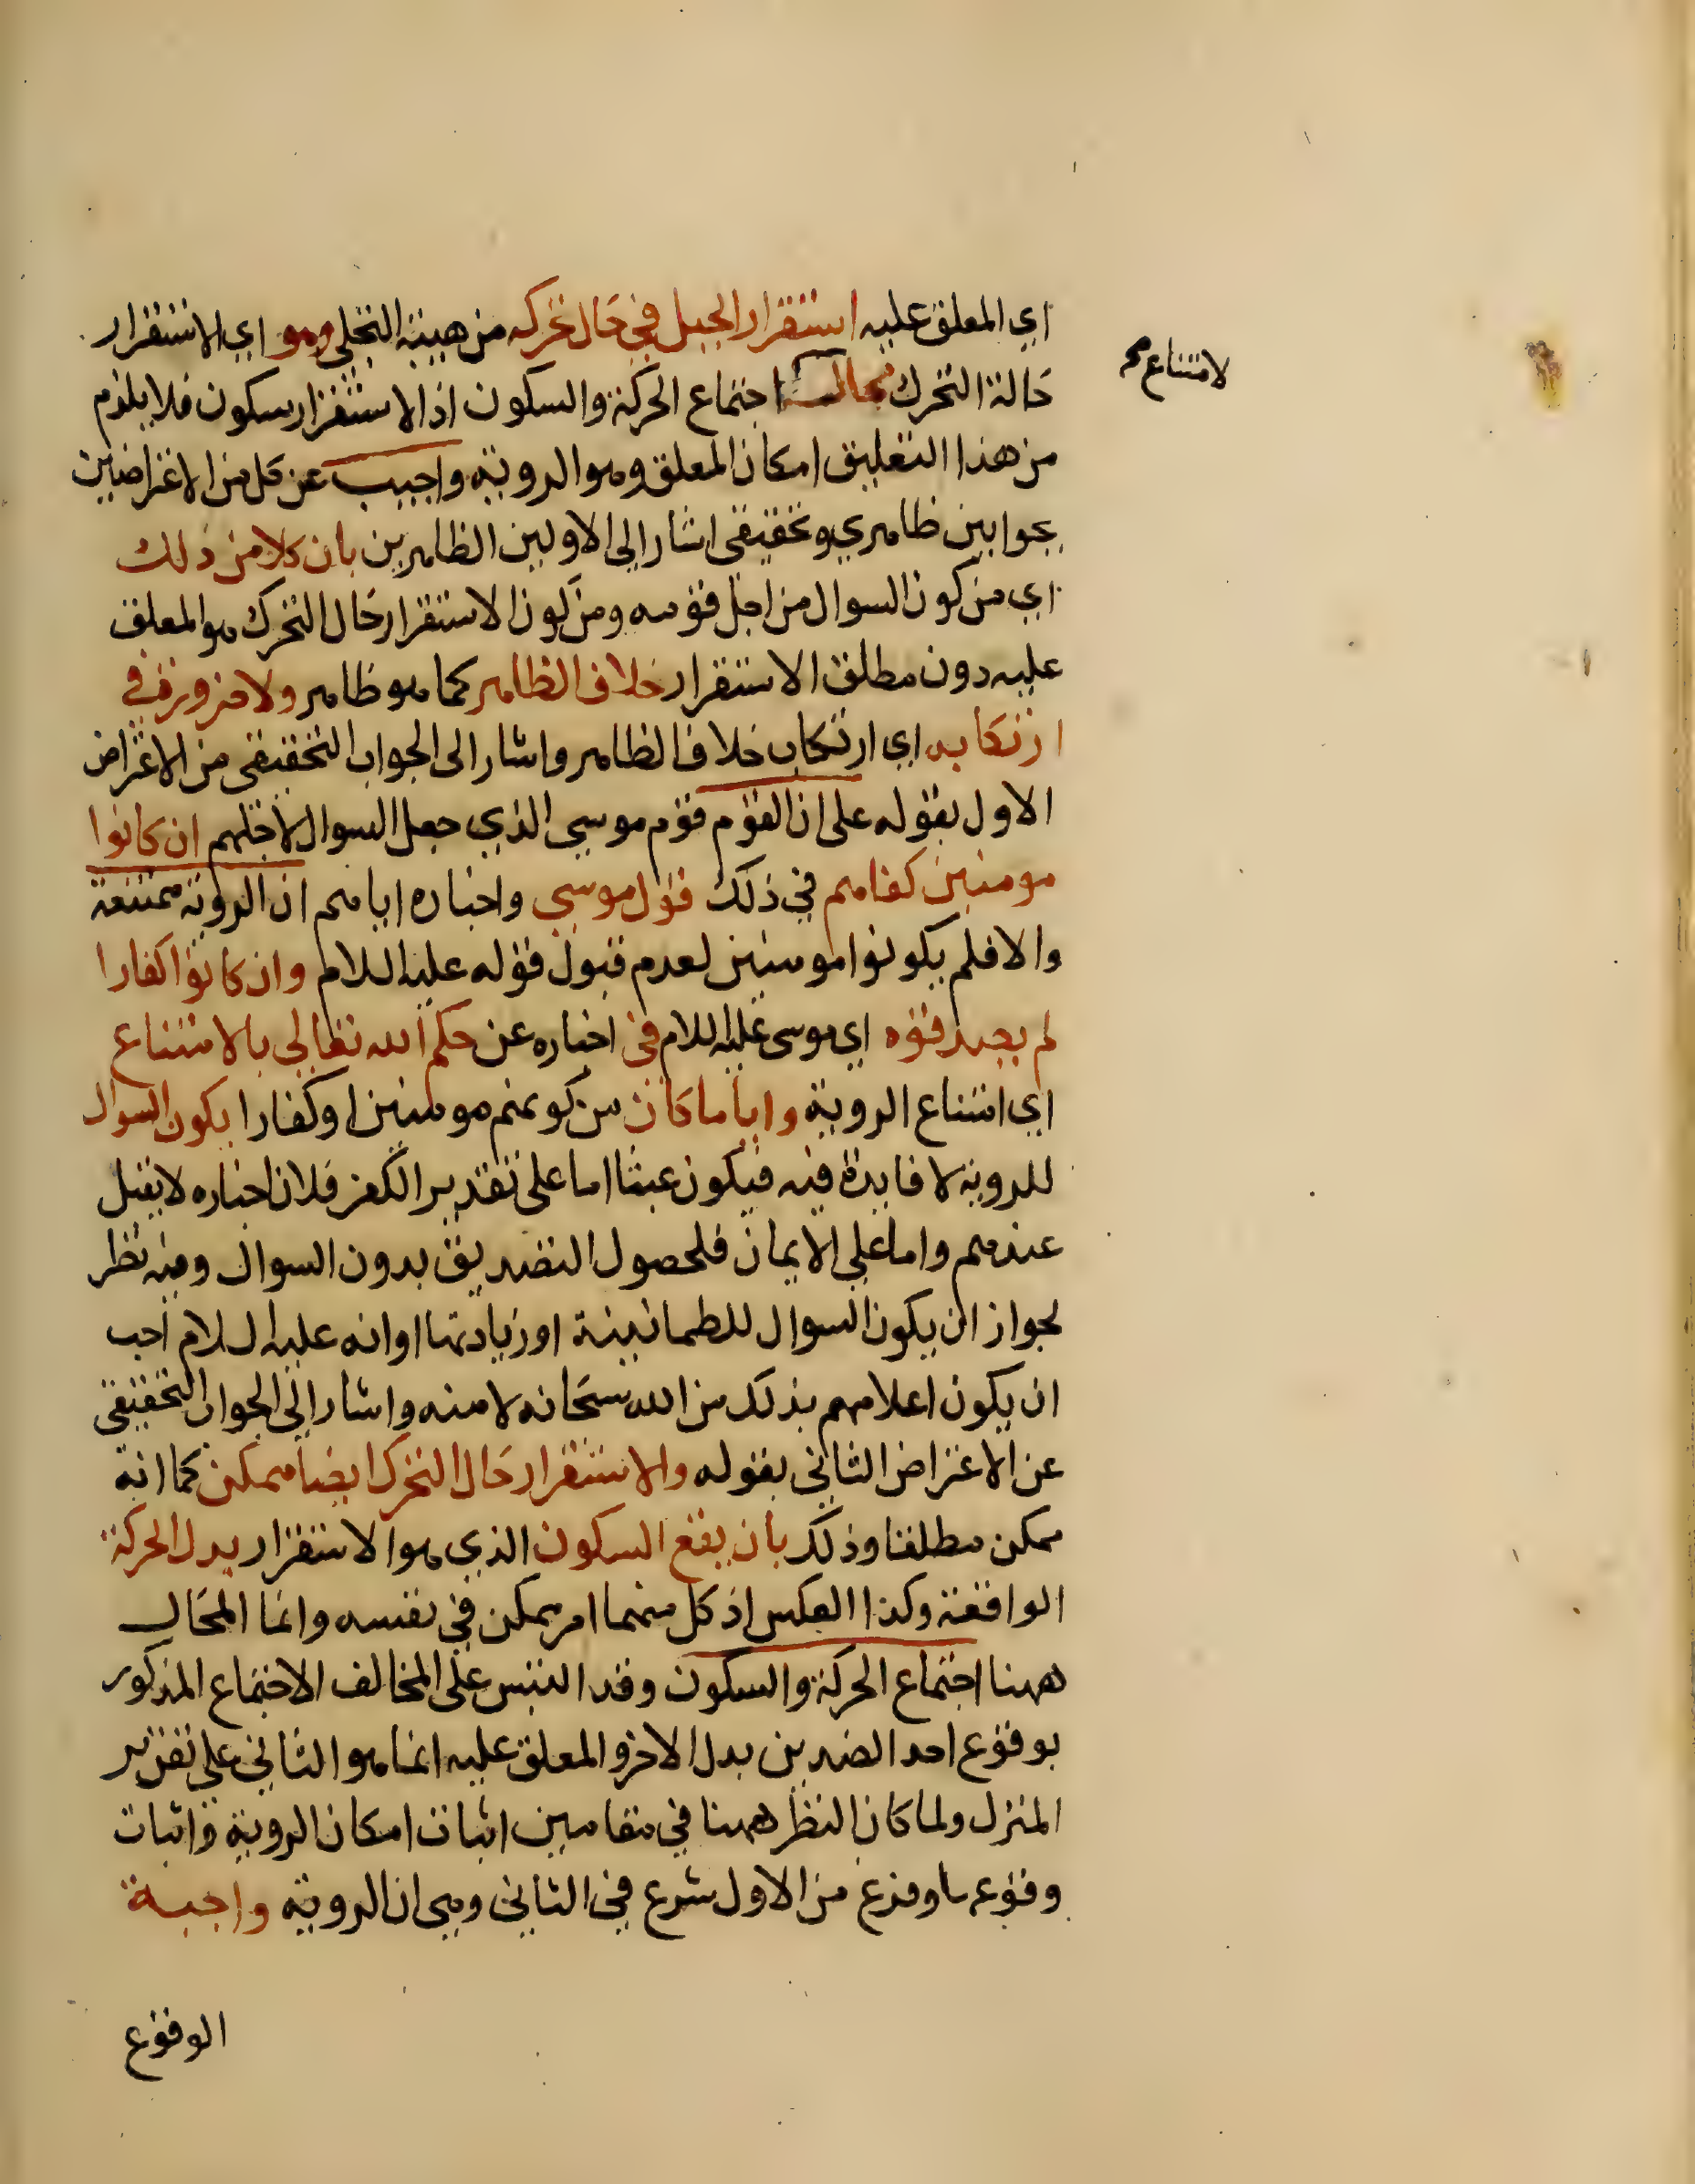 اي المعلق عليه استقرار الجبل في حال تحركه من هيبة التجلي وهو اي الاستقرار
حالة التحرك محال اجتماع الحركة والسكون اذ الاستقرار سكون فلا يلزم
لامتناع صح
من هذا التعليق امكان المعلق وهو الروية واجيب عن كل من الاعتراضين
بجوابين ظاهري وتحقيقي اشار الى الاولين الظاهرين بان كلا من ذلك
اي من كون السوال من اجل قومه ومن كون الاستقرار حال التحرك هو المعلق
عليه دون مطلق الاستقرار خلاف الظاهر كما هو ظاهر ولا ضرورة في
ارتكابه اي ارتكاب خلاف الظاهر واشار الى الجواب التحقيقي من الاعتراض
الاول بقوله على ان القوم قوم موسى الذي جعل السوال لاجلهم ان كانوا
مومنين كفاهم في ذلك قول موسى واخباره اياهم ان الروية ممتنعة
والا فلم يكونوا مومنين لعدم قبول قوله عليه السلام وان كانوا كفارا
لم يصدقوه اي موسى عليه السلام في اخباره عن حكم الله تعالى بالامتناع
اي امتناع الروية وايا ما كان من كونهم مومنين او كفارا يكون السوال
للروية لا فايدة فيه فيكون عبثا اما على تقدير الكفر فلان اخباره لا يقبل
عندهم واما على الايمان فلحصول التصديق بدون السوال وفيه نظر
لجواز ان يكون السوال للطمانينة او زيادتها او انه عليه السلام احب
ان يكون اعلامهم بذلك من الله سبحانه لا منه واشار الى الجواب التحقيقي
عن الاعتراض الثاني بقوله والاستقرار حال التحرك ايضا ممكن كما انه
ممكن مطلقا وذلك بان يقع السكون الذي هو الاستقرار بدل الحركة
الواقعة وكذا العكس اذ كل منهما امر ممكن في نفسه وانما المحال
ههنا اجتماع الحركة والسكون وقد التبس على المخالف الاجتماع المذكور
بوقوع احد الضدين بدل الاخر والمعلق عليه انما هو الثاني على تقرير
المنزل ولما كان النظر ههنا في مقامين اثبات امكان الروية واثبات
وقوعها وفرغ من الاول شرع في الثاني وهي ان الروية واجبة
الوقوع